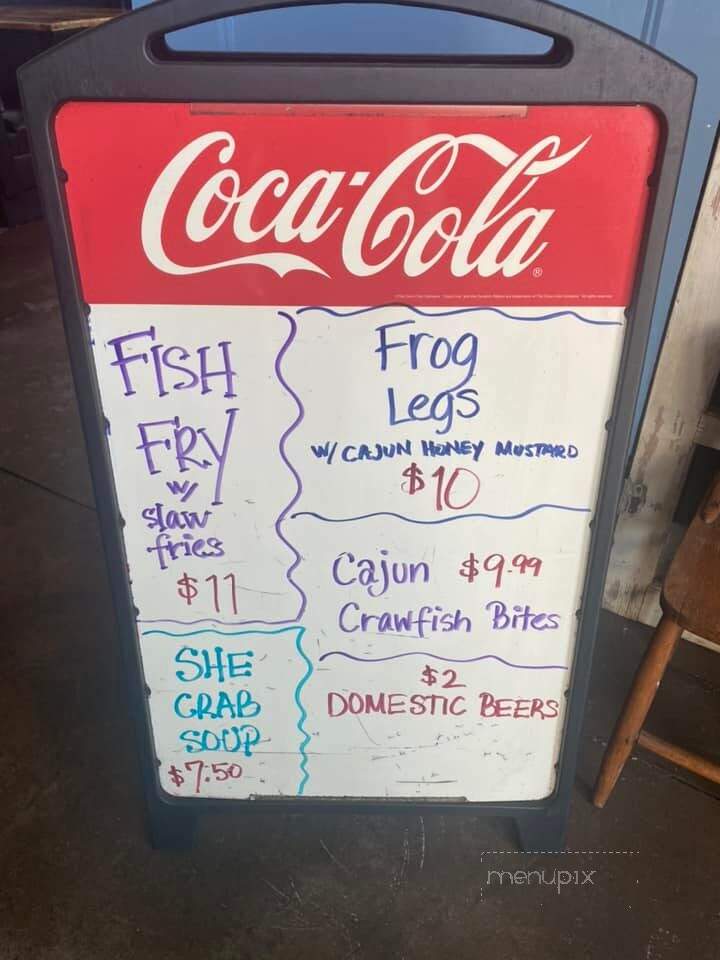 Coca-Cola
FISH
FRY
w/
slaw
fries
$11
SHE
CRAB
SOUP
$7.50
Frog
Legs
W/ CAJUN HONEY MUSTARD
$10
Cajun $9.99
Crawfish Bites
$2
DOMESTIC BEERS
menupix